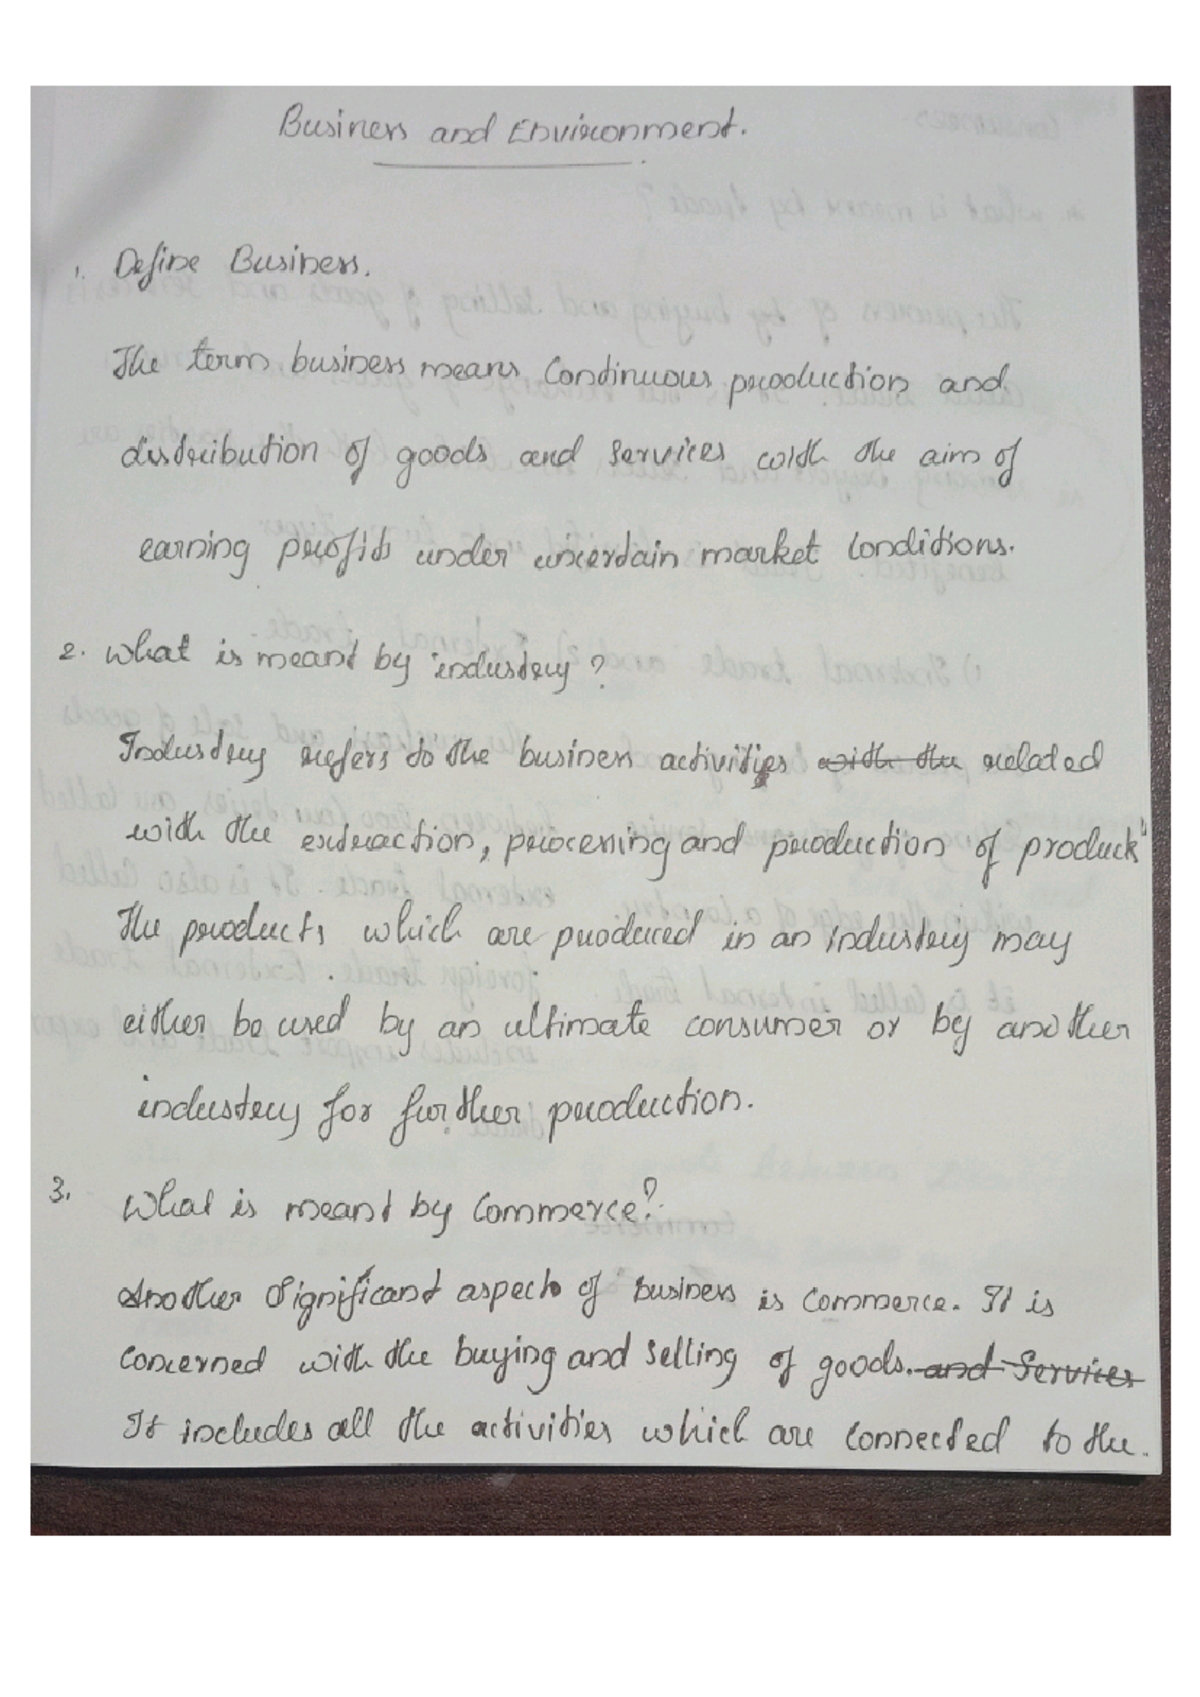 Business and Environment.
1. Define Business.
The term business means Continuous production and
distribution of goods and Services with the aim of
earning profits under uncertain market Conditions.
2. What is meant by industry?
Industry refers to the business activities with the related
with the extraction, processing and production of products
The products which are produced in an industry may
either be used by an ultimate consumer or by another
industry for further production.
3. What is meant by Commerce?
Another Significant aspect of business is Commerce. It is
Concerned with the buying and Selling of goods. and Services
It includes all the activities which are Connected to the.